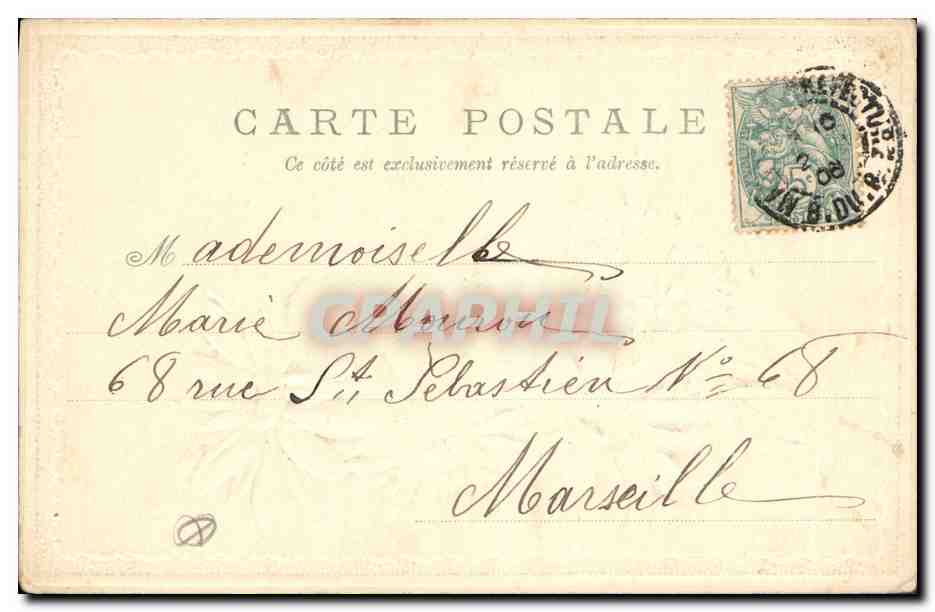 CARTE POSTALE
Ce côté est exclusivement réservé à l'adresse.
Mademoiselle
Marie Mouron
CPAPHIL
68 rue St Sébastien No 68
Marseille